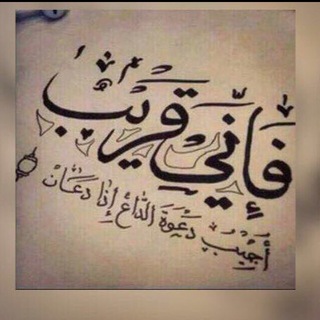 فَإِنِّي قَرِيبٌ
أُجِيبُ دَعْوَةَ الدَّاعِ إِذَا دَعَانْ